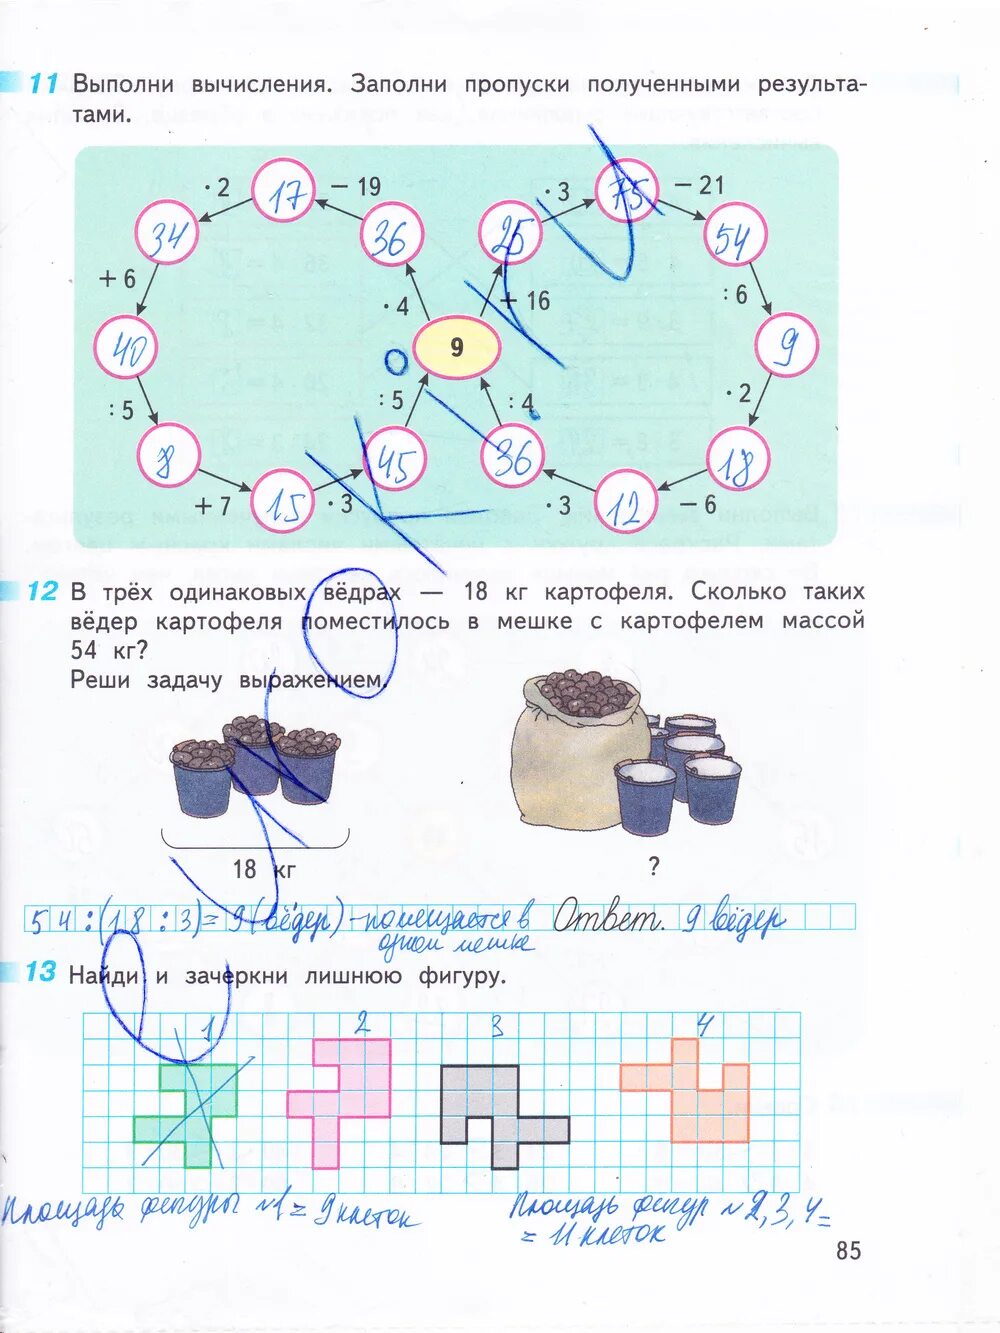 11 Выполни вычисления. Заполни пропуски полученными результа-
тами.
· 2 17 – 19 · 3 75 – 21
34 36 25 54
+ 6 · 4 + 16 : 6
40 9 9
: 5 : 5 : 4 · 2
8 45 36 18
+ 7 15 · 3 · 3 12 – 6
12 В трёх одинаковых вёдрах — 18 кг картофеля. Сколько таких
вёдер картофеля поместилось в мешке с картофелем массой
54 кг?
Реши задачу выражением.
18 кг ?
54:(18:3)=9(вёдер)-помещается в Ответ. 9 вёдер
одном мешке
13 Найди и зачеркни лишнюю фигуру.
1 2 3 4
Площадь фигуры №1 = 9 клеток
Площадь фигур №2,3,4=
= 11 клеток
85